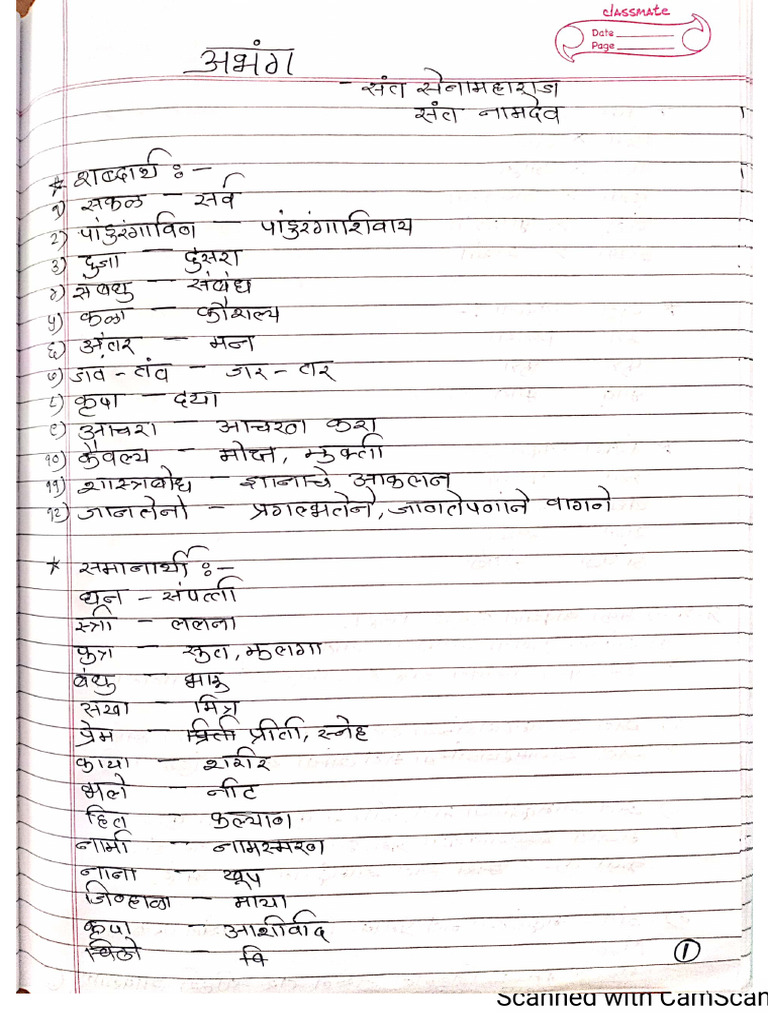 classmate
Date
Page
अभंग
- संत सेनामहाराज
संत नामदेव
* शब्दार्थ :-
१) सकळ - सर्व
२) पांडुरंगाविण - पांडुरंगाशिवाय
३) दुजा - दुसरा
४) संबधु - संबंध
५) कळा - कौशल्य
६) अंतर - मन
७) जंव - तंव - जर - तर
८) कृपा - दया
९) आचरा - आचरण करा
१०) कैवल्य - मोक्ष, मुक्ती
११) शास्त्रबोध - ज्ञानाचे आकलन
१२) जानतेनो - प्रगल्भतेने, जाणतेपणाने वागणे
* समानार्थी :-
धन - संपत्ती
स्त्री - ललना
पुत्र - सुत, मुलगा
बंधु - भाऊ
सखा - मित्र
प्रेम - प्रिती प्रीती, स्नेह
काया - शरीर
भले - नीट
हित - कल्याण
नामी - नामस्मरण
नाना - खूप
जिव्हाळा - माया
कृपा - आशीर्वाद
वि
1
Scanned with CamScan